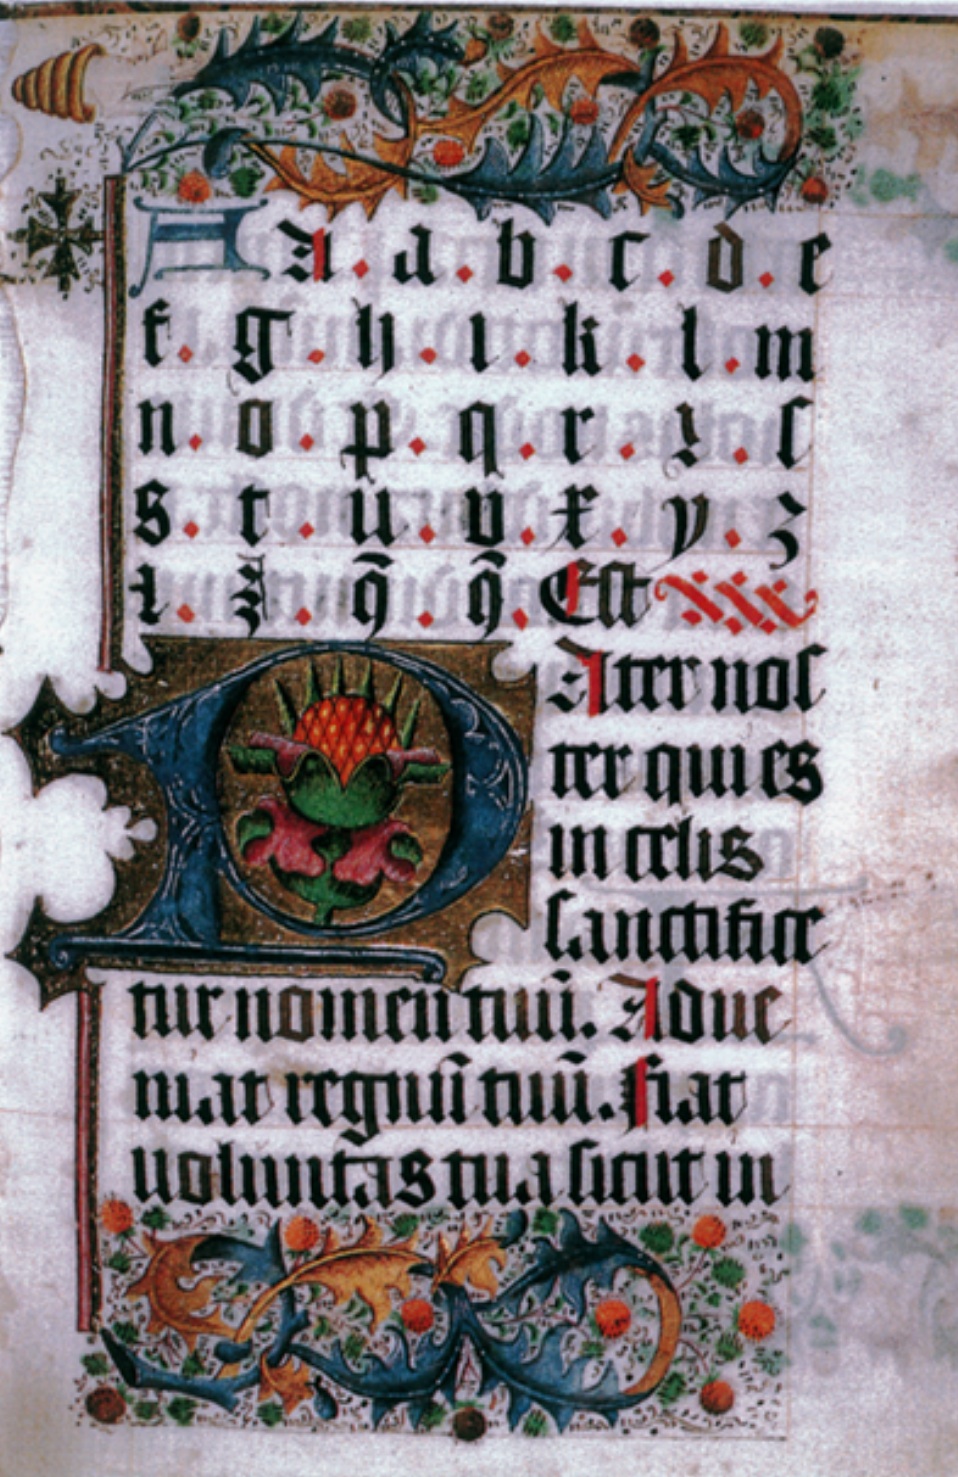 A A . a . b . c . d . e
f . g . h . i . k . l . m
n . o . p . q . r . ꝛ . ſ
s . t . u . v . x . y . z
⁊ . q̄ . q̄ . Eſt
PAter noſ
ter qui es
in celis
ſanctifice
tur nomen tuū. Adue
niat regnuū tuū. fiat
uoluntas tua ſicut in